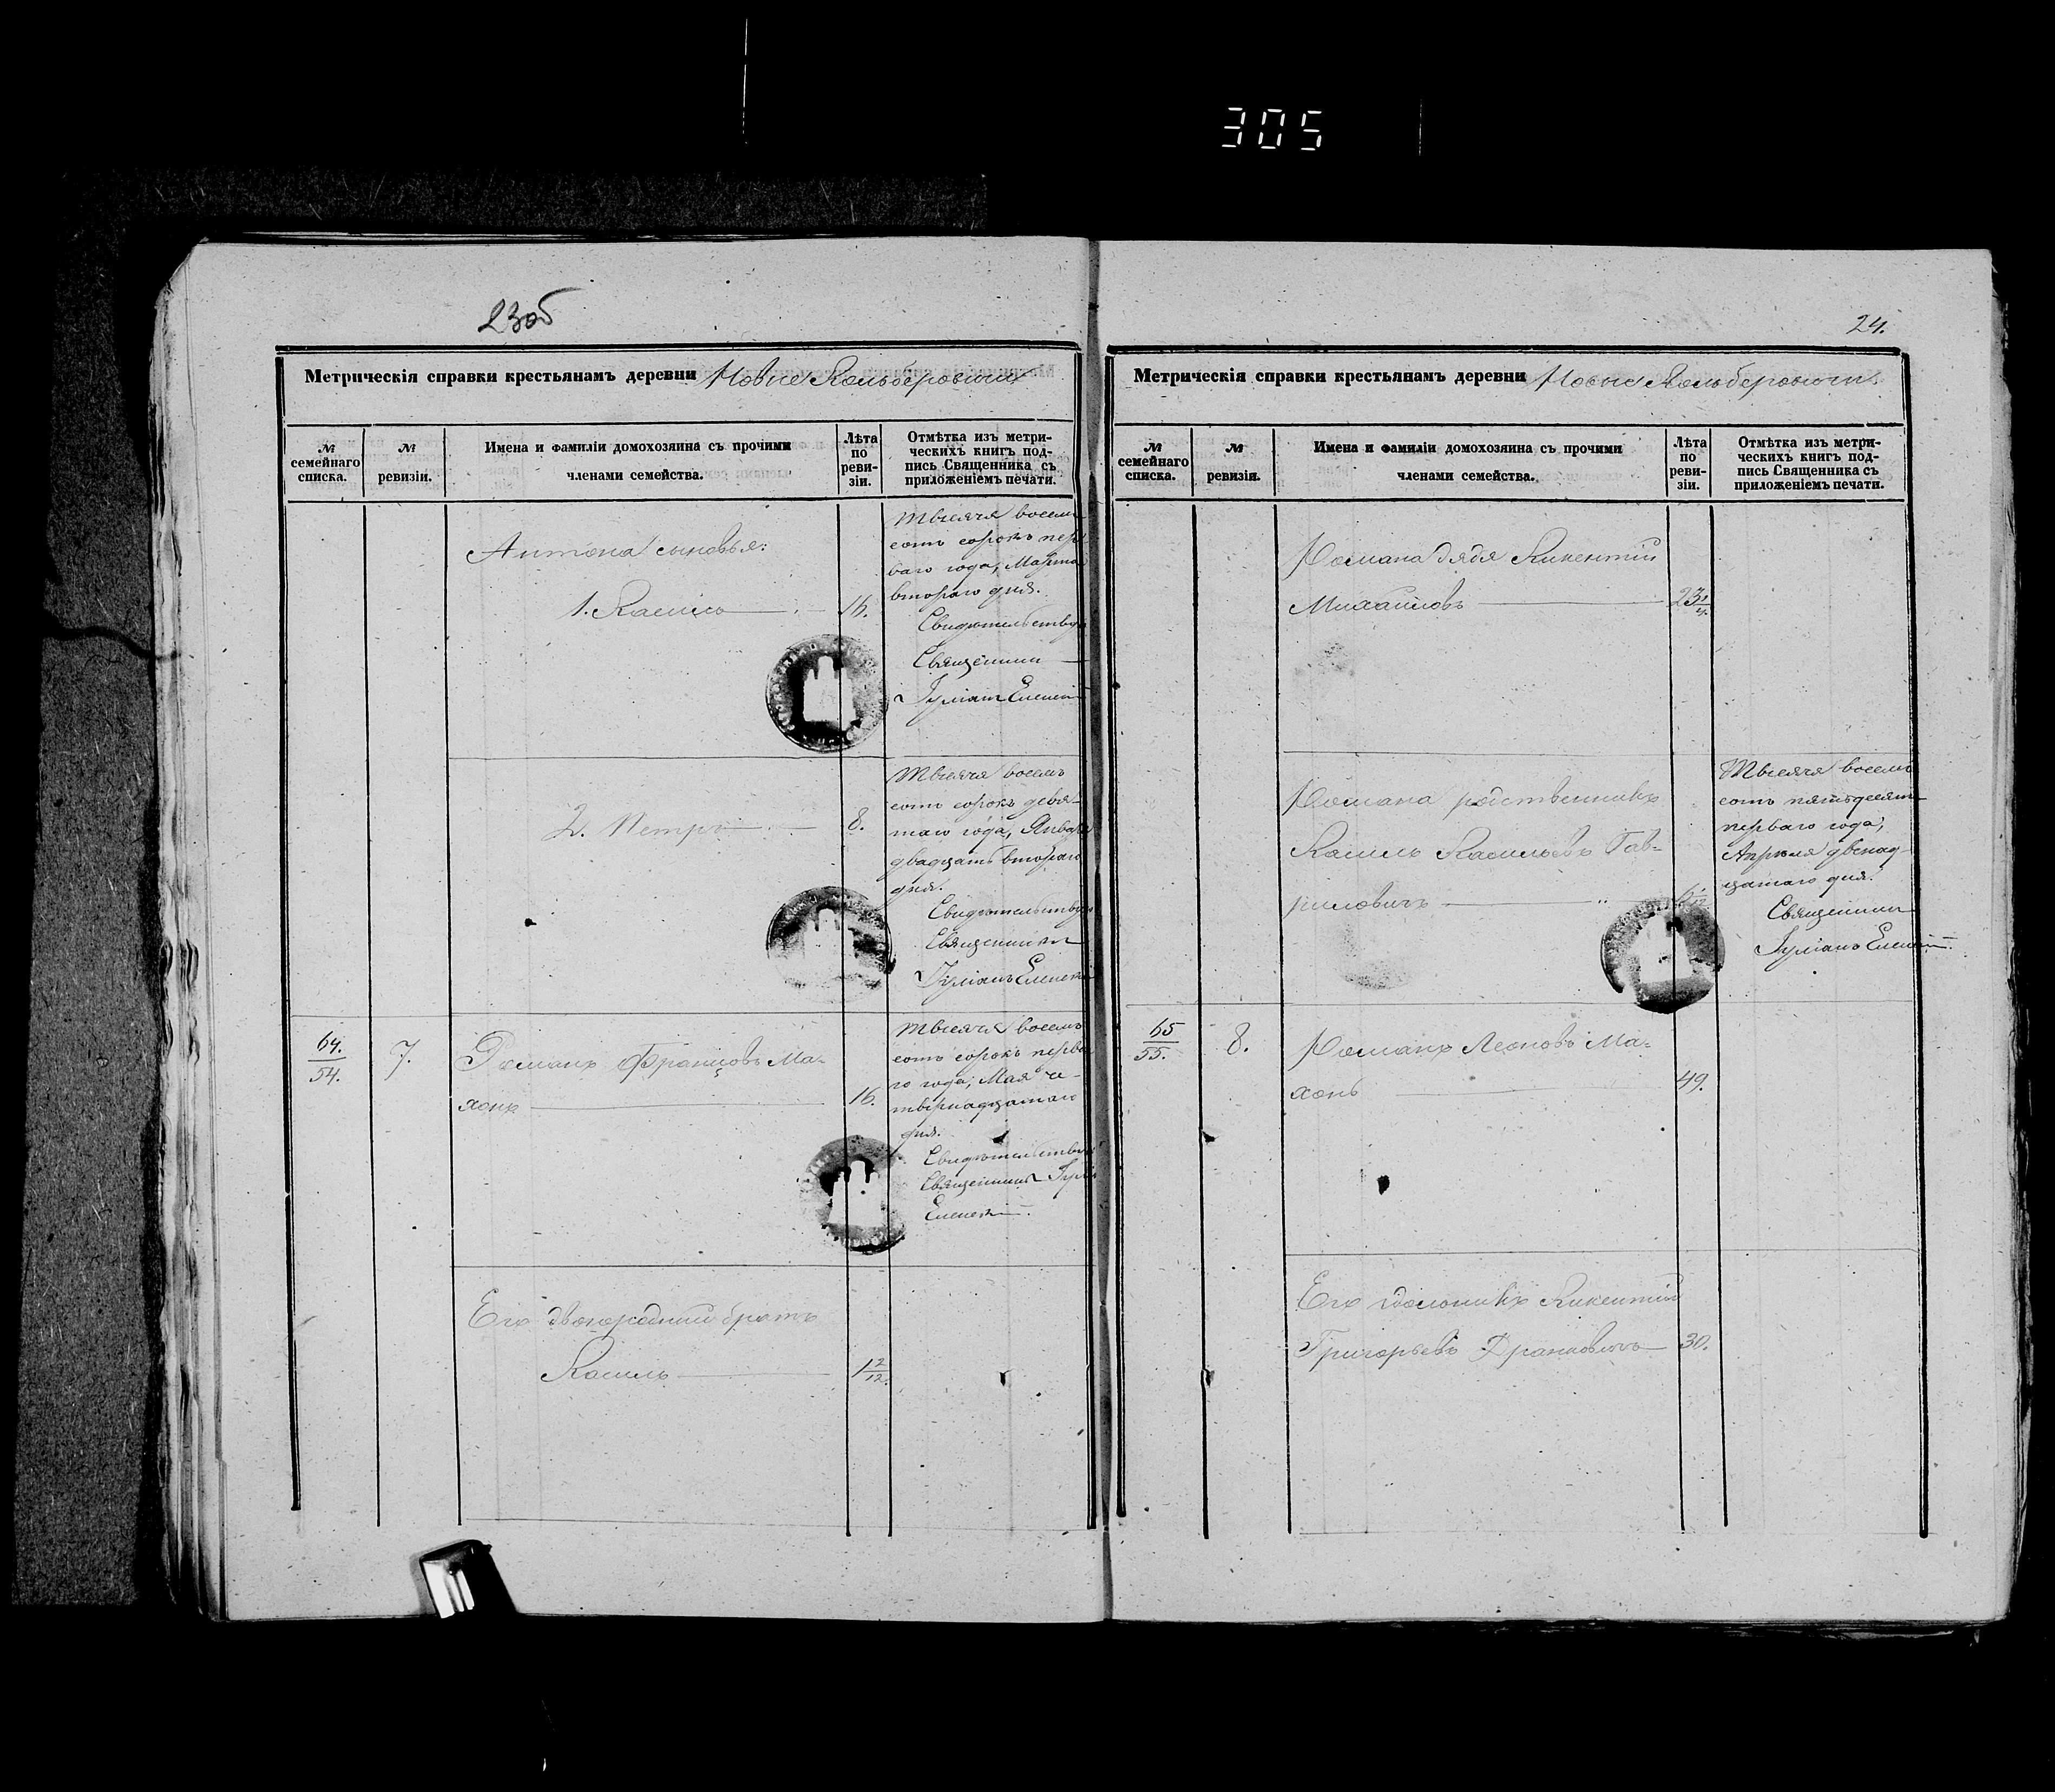 305
23об
Метрическія справки крестьянамъ деревни Новые Кольберовичи
№ семейнаго списка.
№ ревизіи.
Имена и фамиліи домохозяина съ прочими членами семейства.
Лѣта по реви-зіи.
Отмѣтка изъ метри-ческихъ книгъ под-пись Священника съ приложеніемъ печати.
Антона сыновья:
1. Василь 16.
Тысяча восемь
сотъ сорокъ пер
ваго года, Марта
втораго дня.
Свидѣтельству
Священникъ
Іуліанъ
2. Петръ 8.
Тысяча восемь
сотъ сорокъ девя-
таго года, Января
двадцать втораго
дня.
Свидѣтельству
Священникъ
Іуліанъ
64. 54.
7.
Романъ Францовъ Ма-
хонь 16.
Тысяча восемь
сотъ сорокъ перва
го года, Мая че-
твернадцатаго
дня.
Свидѣтельству
Священникъ
Его двоюродный братъ
Василь 1 2/12.
24.
Метрическія справки крестьянамъ деревни Новые Кольберовичи
№ семейнаго списка.
№ ревизіи.
Имена и фамиліи домохозяина съ прочими членами семейства.
Лѣта по реви-зіи.
Отмѣтка изъ метри-ческихъ книгъ под-пись Священника съ приложеніемъ печати.
Романа дядя Викентій
Михайловъ
Романа родственникъ
Василь Васильевъ Гав-
риловичъ
Тысяча восемь
сотъ пятьдесят
перваго года,
Апрѣля двенад
цатаго дня.
Священникъ
Іуліанъ
65 55.
8.
Романъ Леоновъ Ма-
хонь 49.
Его Викентій
Григорьевъ 30.